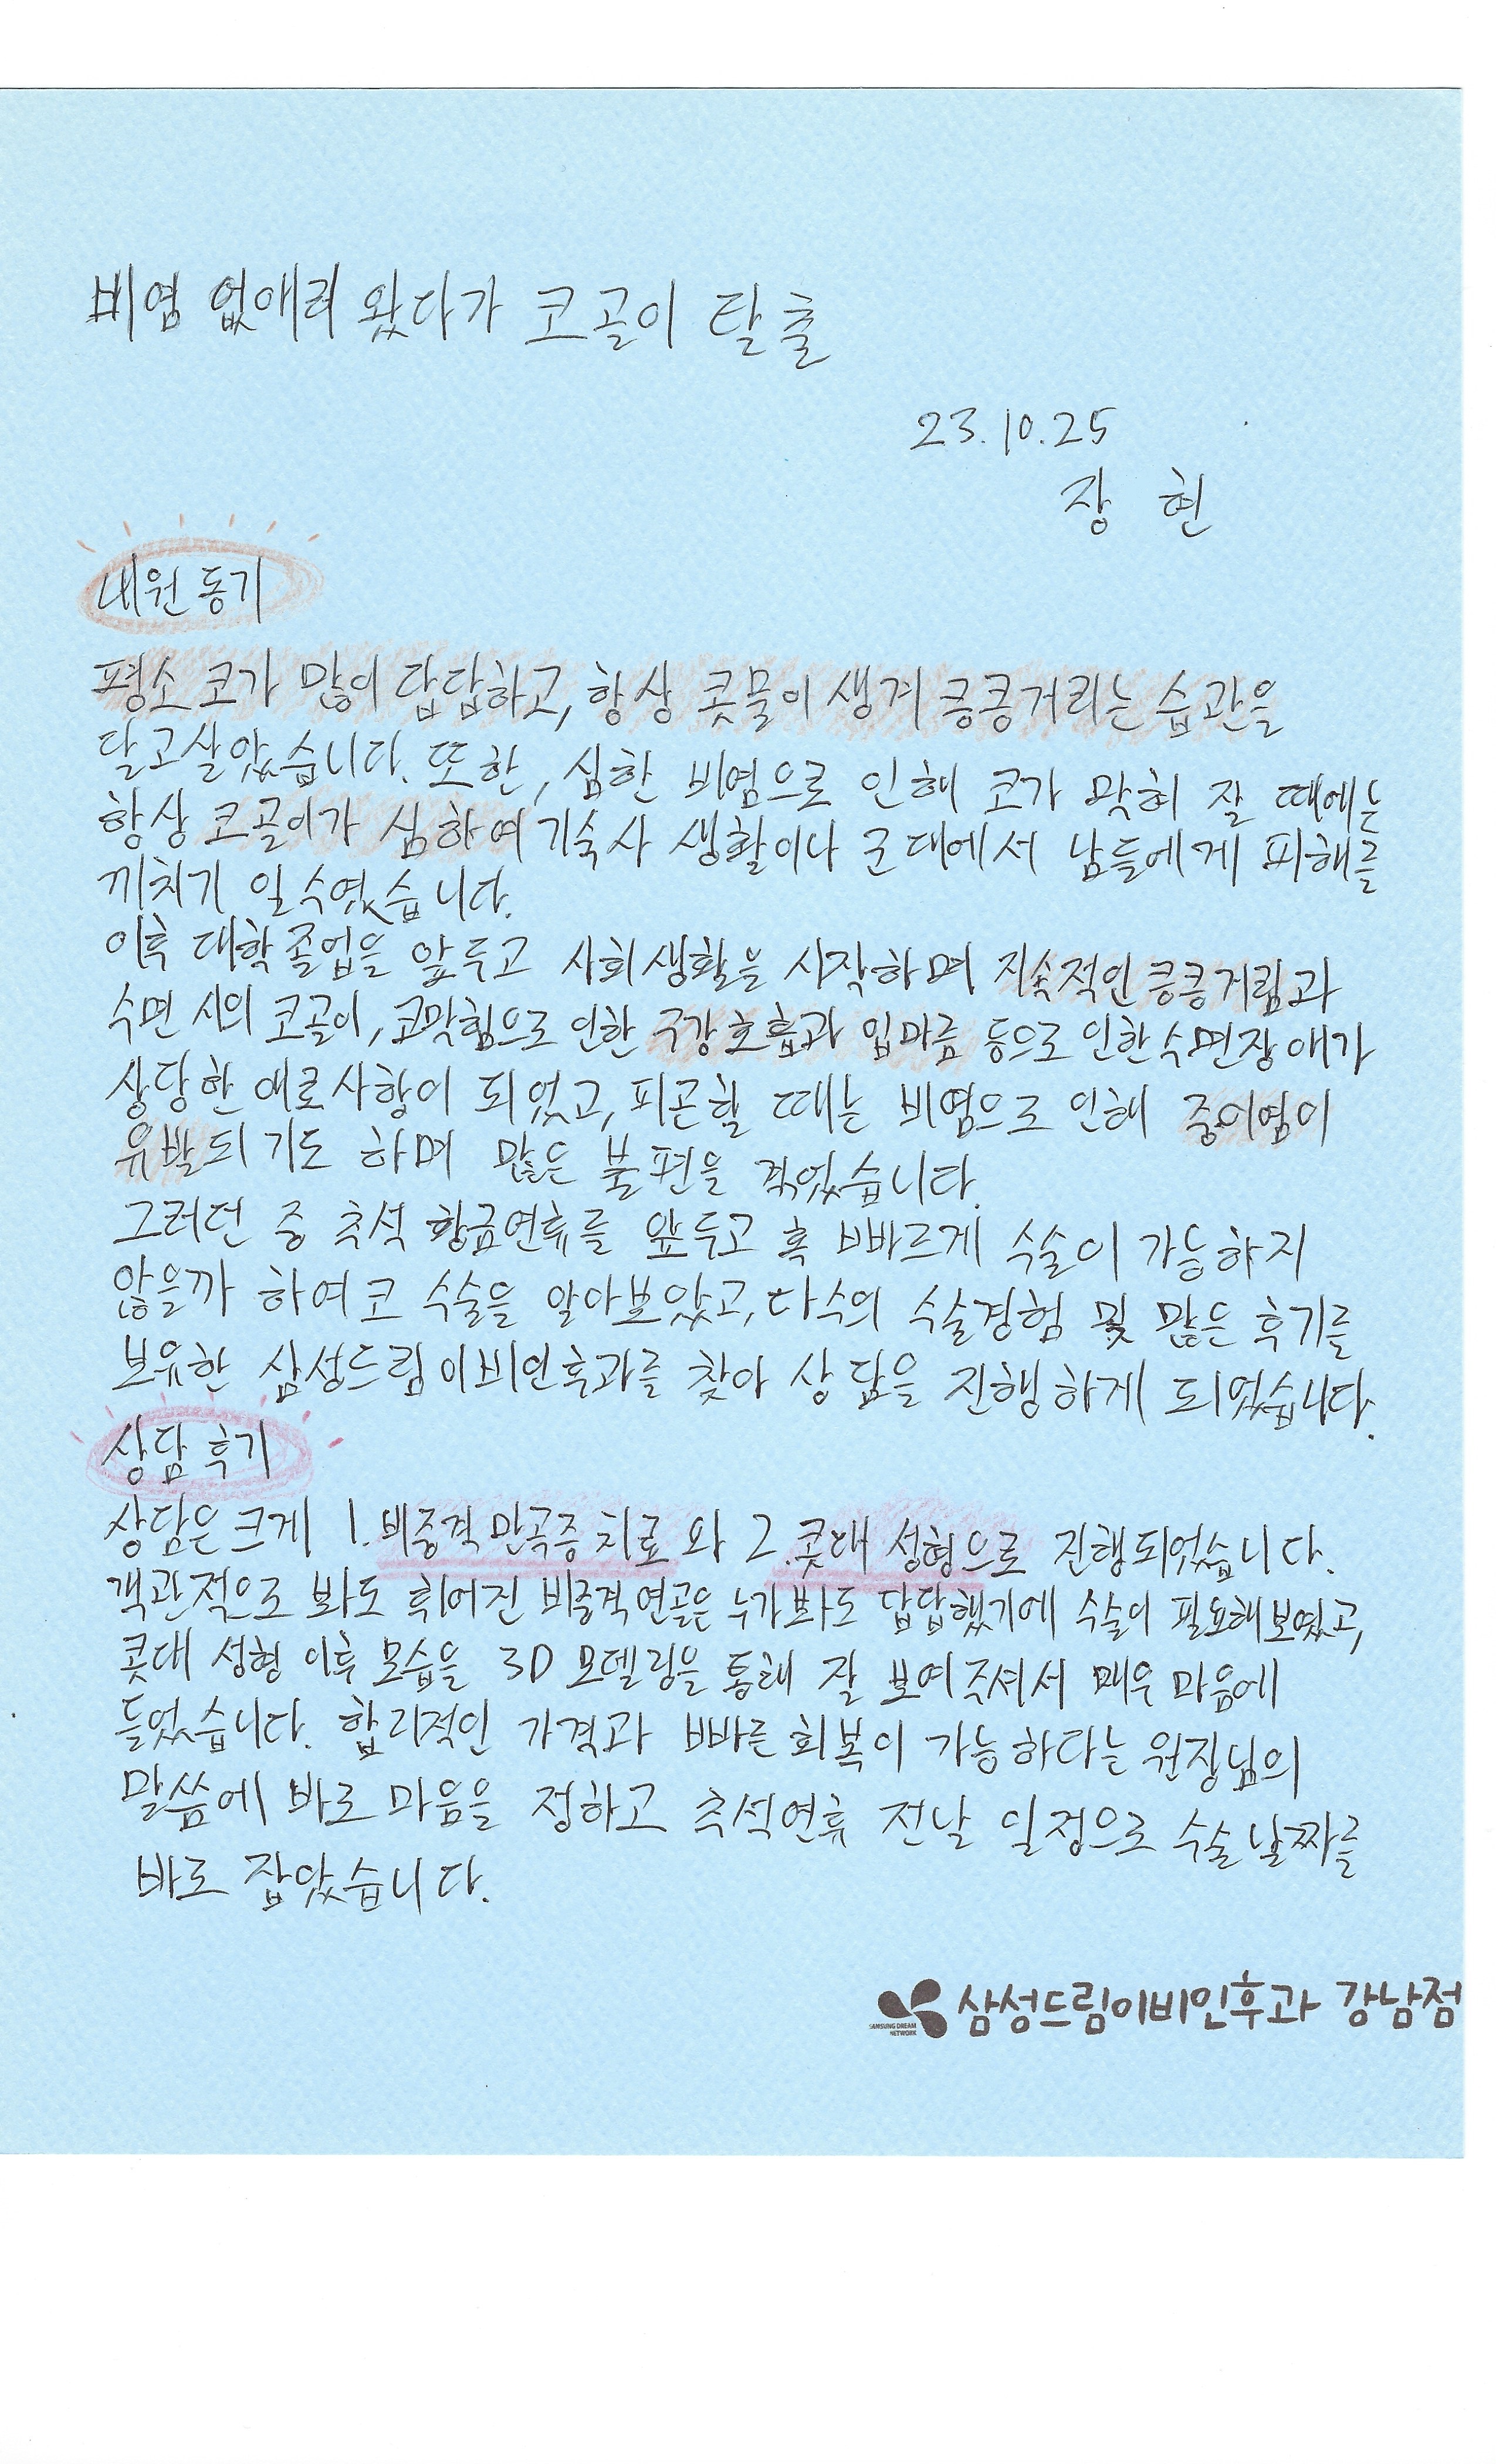 비염 없애러 왔다가 코골이 탈출
23.10.25
장 현
내원 동기
평소 코가 많이 답답하고, 항상 콧물이 생겨 킁킁거리는 습관을
달고살았습니다. 또한, 심한 비염으로 인해 코가 막혀 잘 때에는
항상 코골이가 심하여 기숙사 생활이나 군대에서 남들에게 피해를
끼치기 일수였습니다.
이후 대학 졸업을 앞두고 사회생활을 시작하며 지속적인 킁킁거림과
수면 시의 코골이, 코막힘으로 인한 구강호흡과 입마름 등으로 인한 수면장애가
상당한 애로사항이 되었고, 피곤할 때는 비염으로 인해 중이염이
유발되기도 하며 많은 불편을 겪었습니다.
그러던 중 추석 황금연휴를 앞두고 혹 빠르게 수술이 가능하지
않을까 하여 코 수술을 알아보았고, 다수의 수술경험 및 많은 후기를
보유한 삼성드림이비인후과를 찾아 상담을 진행하게 되었습니다.
상담 후기
상담은 크게 1. 비중격 만곡증 치료 와 2. 콧대 성형으로 진행되었습니다.
객관적으로 봐도 휘어진 비중격 연골은 누가봐도 답답했기에 수술이 필요해보였고,
콧대 성형 이후 모습을 3D 모델링을 통해 잘 보여주셔서 매우 마음에
들었습니다. 합리적인 가격과 빠른 회복이 가능하다는 원장님의
말씀에 바로 마음을 정하고 추석연휴 전날 일정으로 수술날짜를
바로 잡았습니다.
SAMSUNG DREAM NETWORK 삼성드림이비인후과 강남점